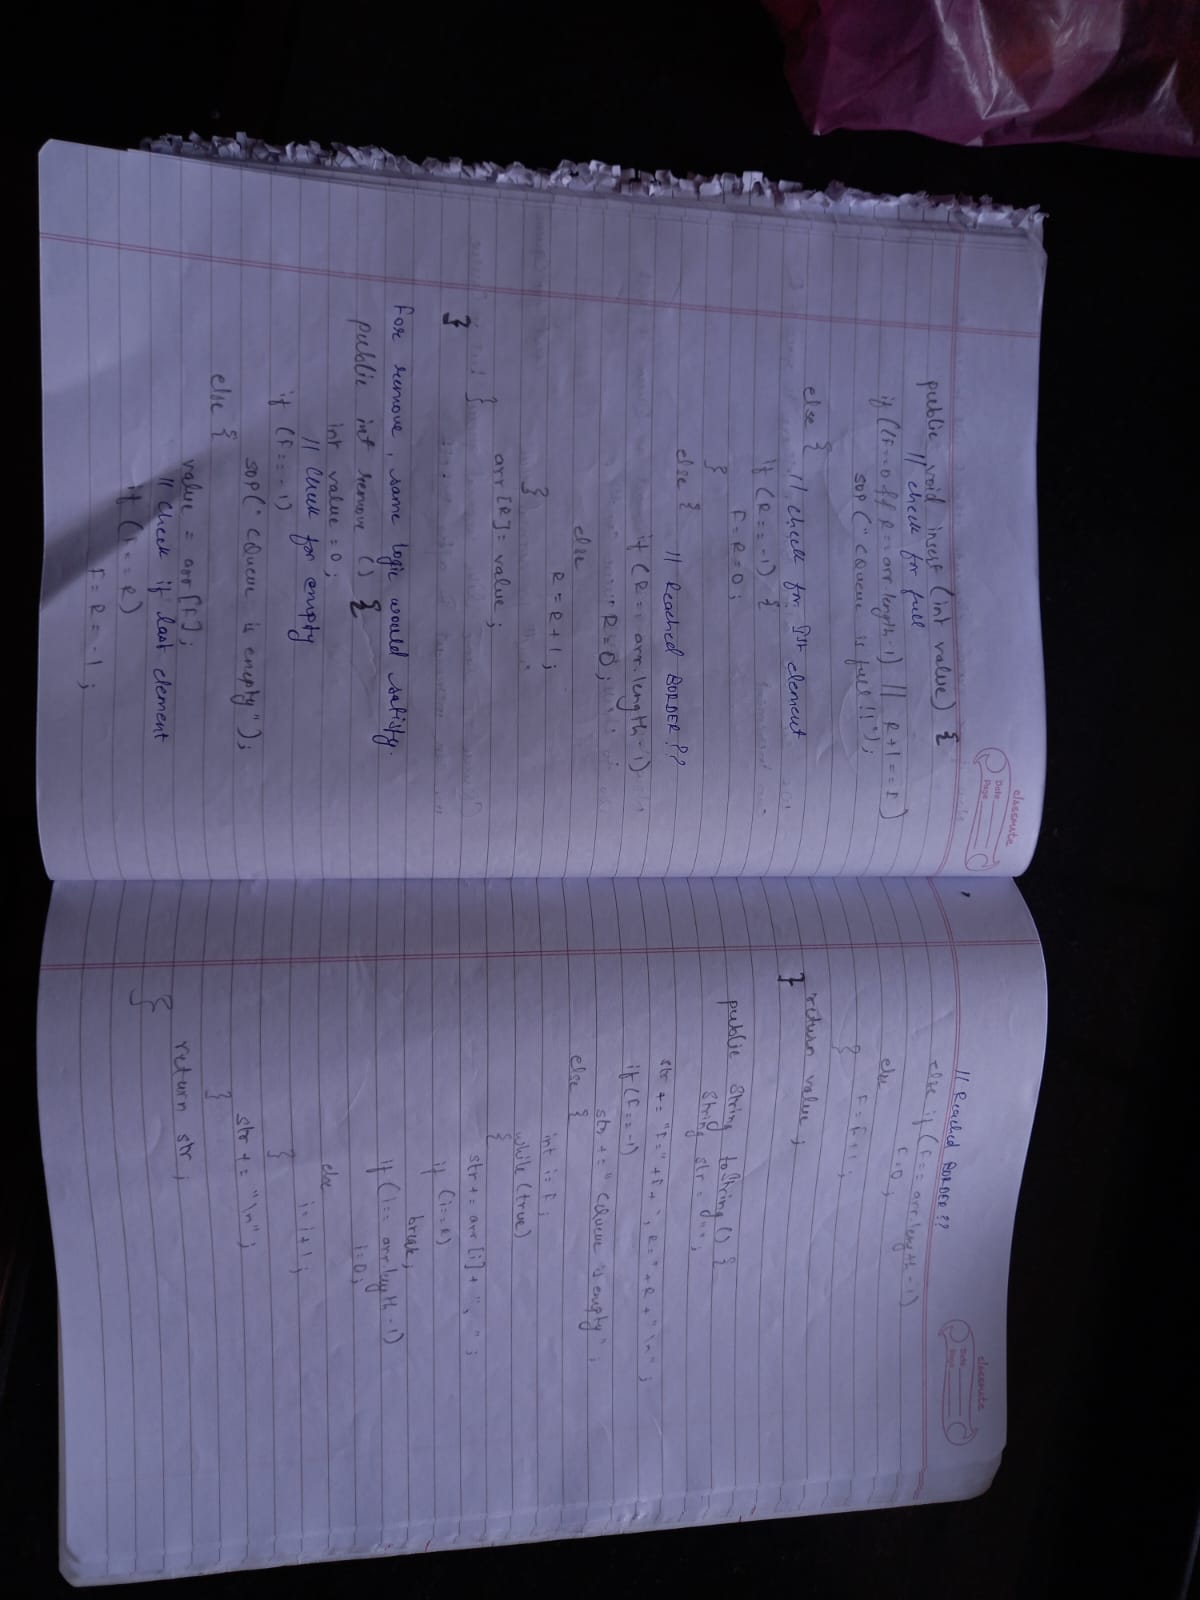 classmate
Date
Page
public void insert (int value) {
// check for full
if ((F==0 && R==arr.length-1) || R+1==F)
SOP ("CQueue is full!!");
else { // check for Ist element
if (R==-1) {
F=R=0;
}
else { // Reached BORDER??
if (R==arr.length-1)
R=0;
else
R=R+1;
}
arr[R]=value;
}
}
For remove, same logic would satisfy.
public int remove () {
int value=0;
// Check for empty
if (F==-1)
SOP("CQueue is empty");
else {
value = arr[F];
// check if last element
if (F==R)
F=R=-1;
classmate
Date
Page
// Reached BORDER??
else if (F==arr.length-1)
F=0;
else
F=F+1;
}
return value;
}
public String toString () {
String str = "";
str += "F="+F+", R="+R+"\n";
if (F==-1)
str += "CQueue is empty";
else {
int i=F;
while (true)
{
str += arr[i]+", ";
if (i==R)
break;
if (i==arr.length-1)
i=0;
else
i=i+1;
}
str += "\n";
}
return str;
}